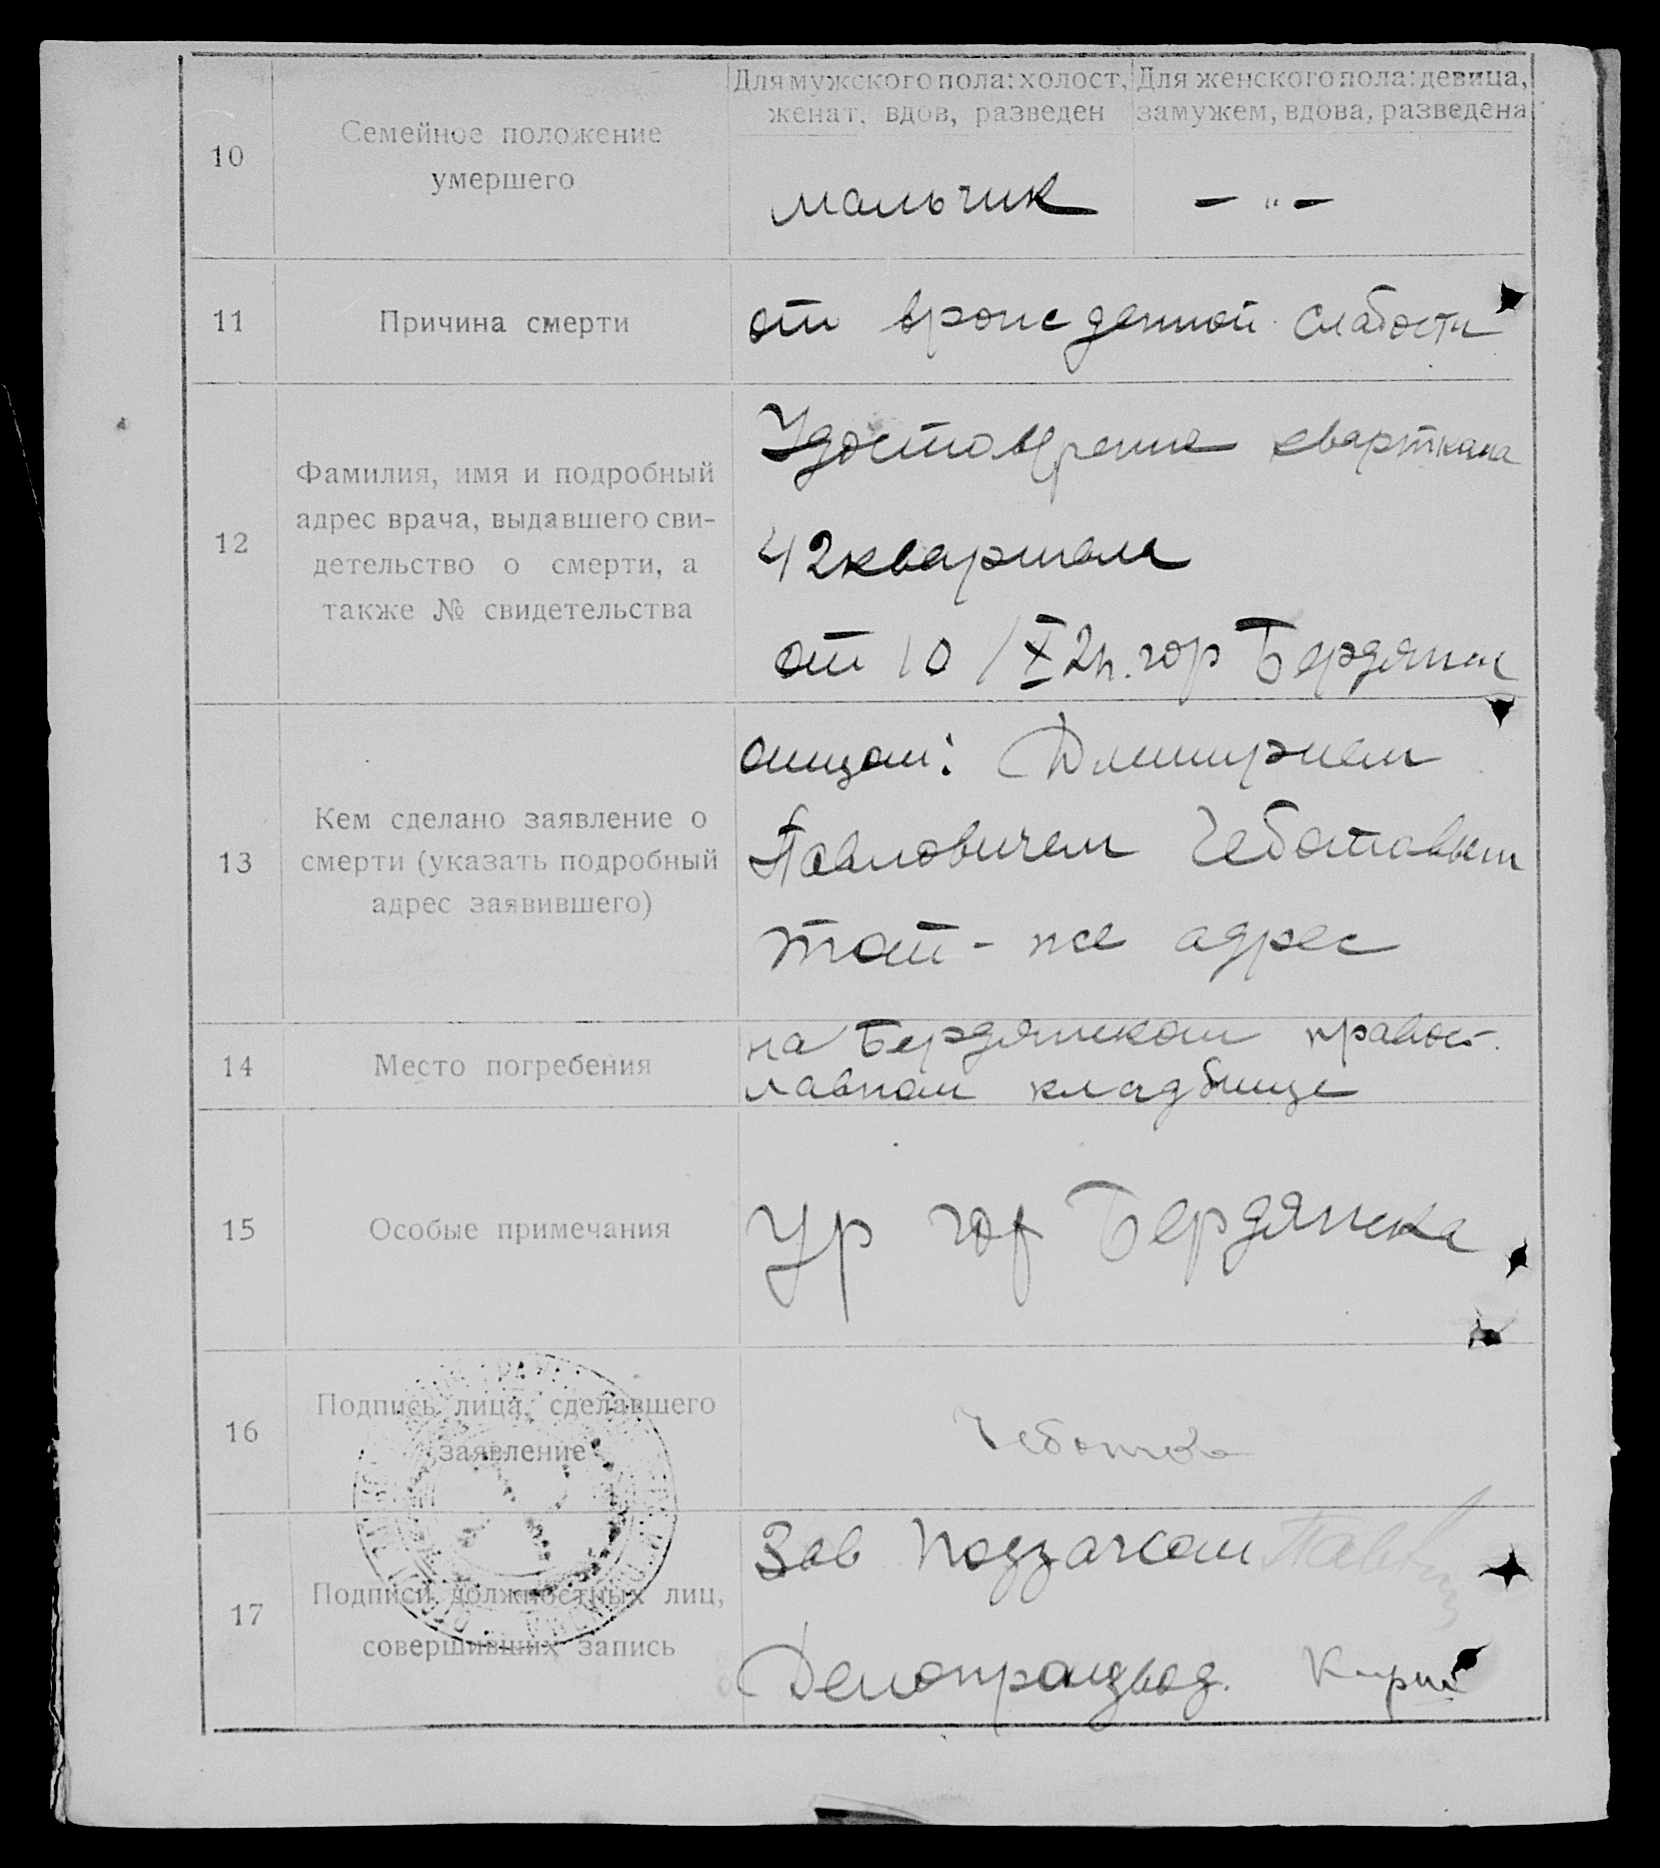 10
Семейное положение
умершего
Для мужского пола: холост,
женат, вдов, разведен
Для женского пола: девица,
замужем, вдова, разведена
мальчик
— " —
11
Причина смерти
от врожденной слабости
12
Фамилия, имя и подробный
адрес врача, выдавшего сви-
детельство о смерти, а
также № свидетельства
Удостоврение
42 квартала
от 10 / X 2 гор Бердянск
13
Кем сделано заявление о
смерти (указать подробный
адрес заявившего)
отцом: Дмитрием
Павловичем Чеботавым
тот - же адрес
14
Место погребения
на Бердянском правос-
лавном кладбище
15
Особые примечания
Ур гор Бердянска
16
Подпись лица, сделавшего
заявление
17
Подписи должностных лиц,
совершивших запись
Зав Подзагсом
Делопроизвод.